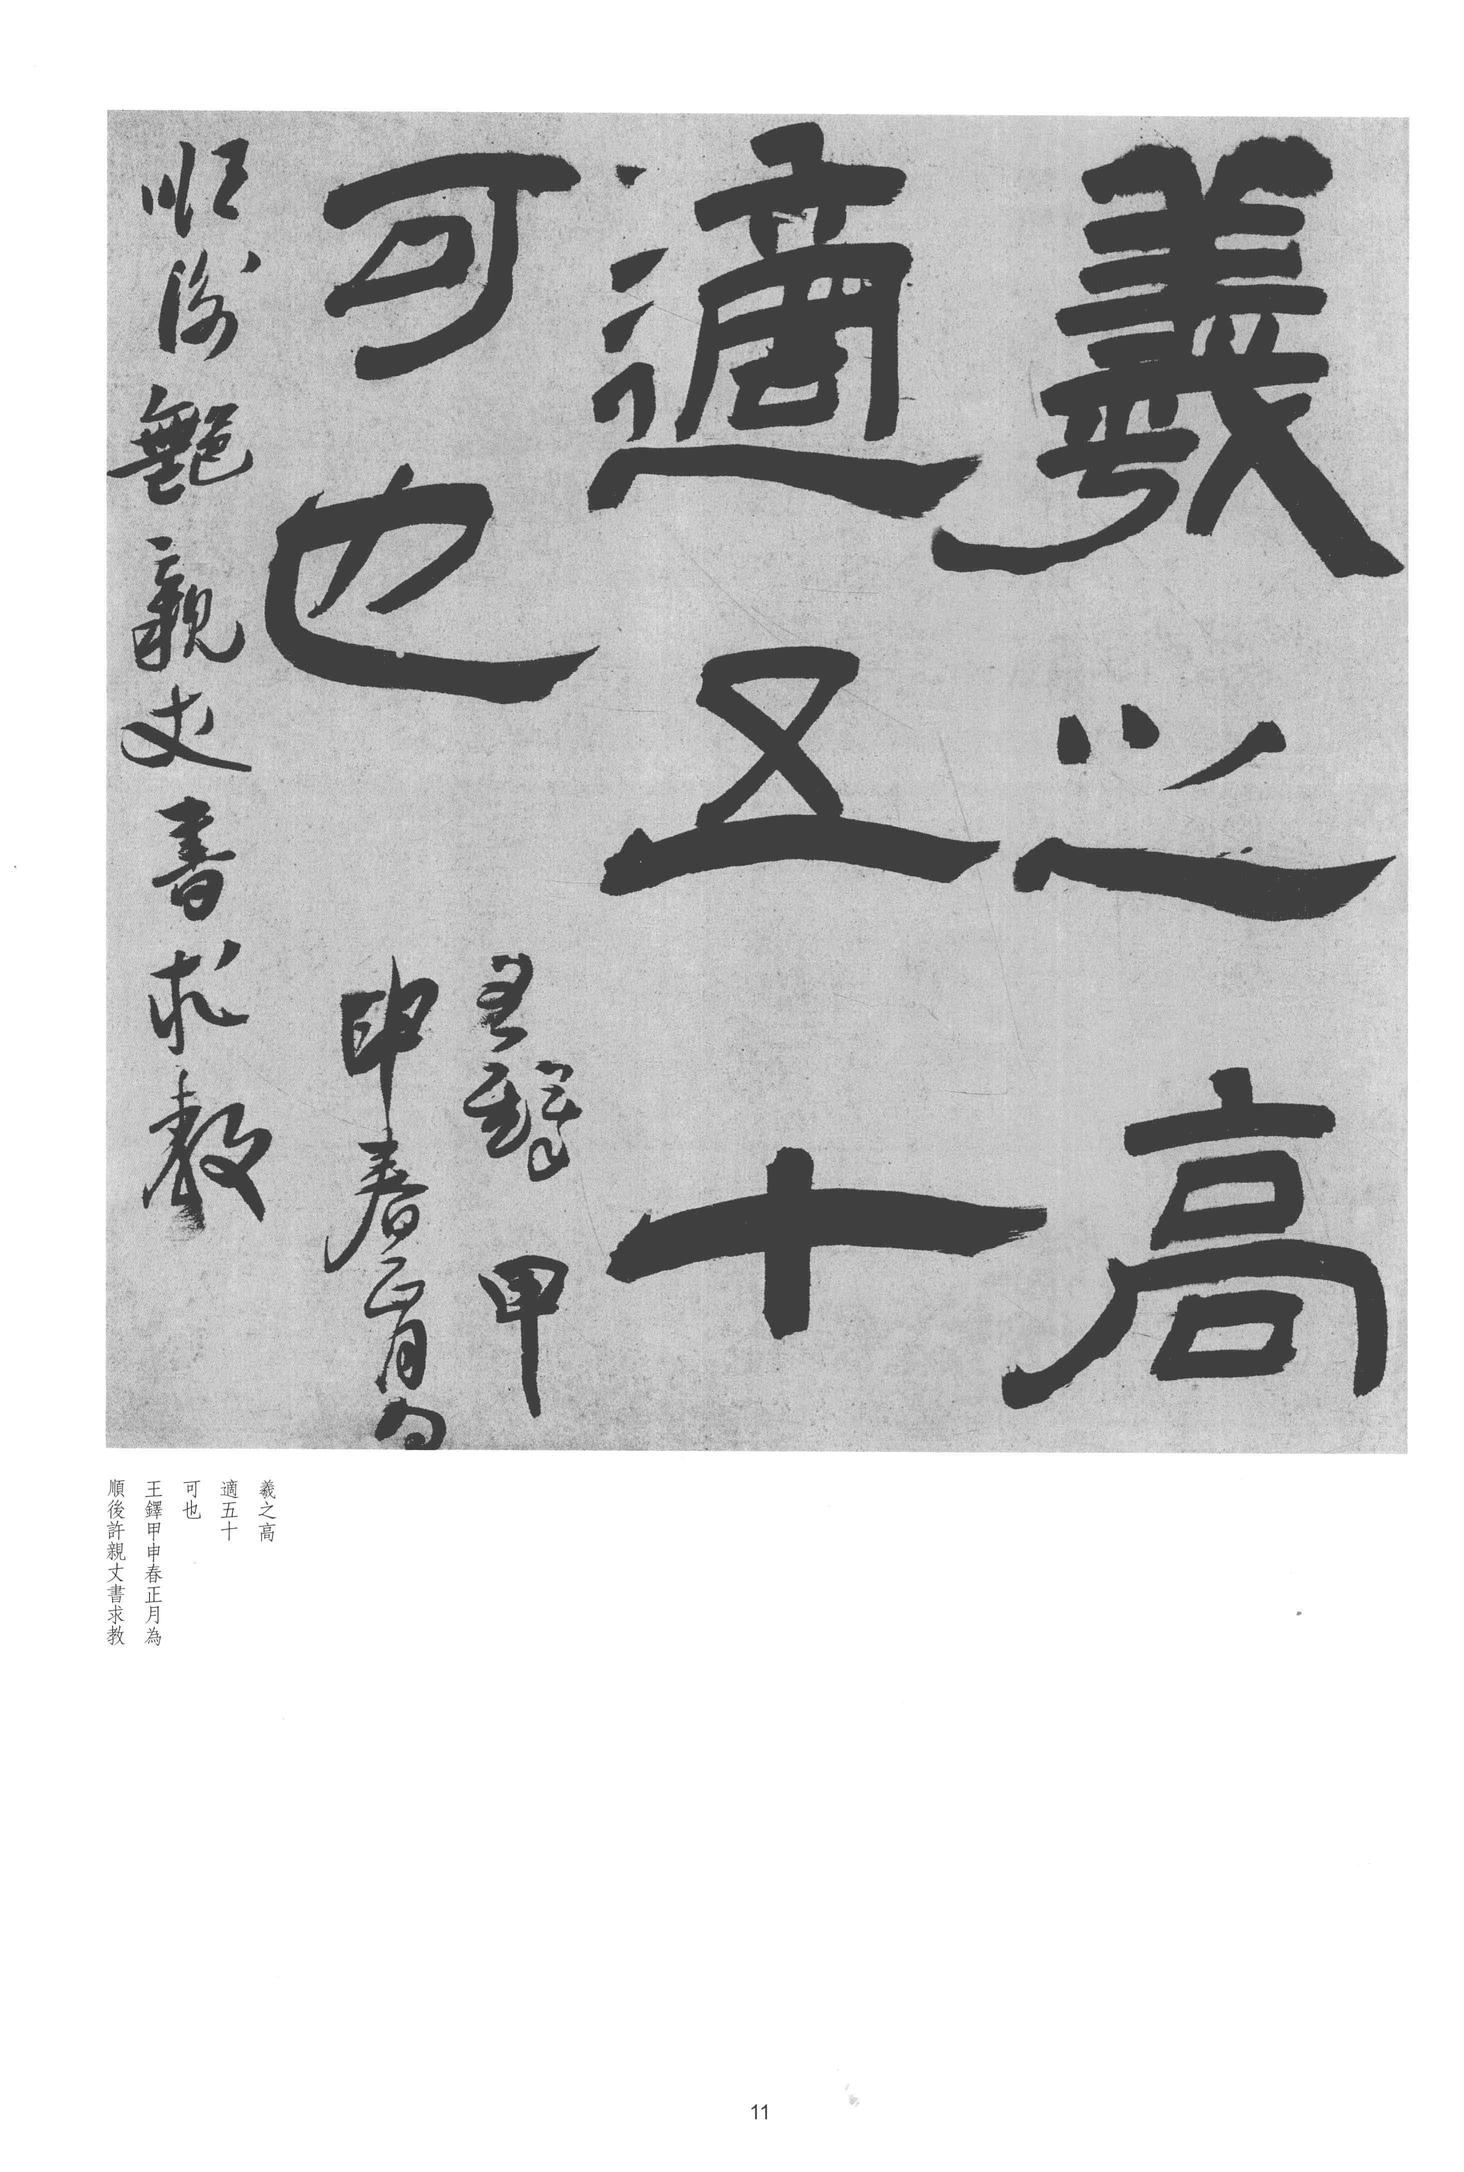 羲之高
適五十
可也
王鐸甲
申春正月為
順後艷親丈書求教
羲之高
適五十
可也
王鐸甲申春正月為
順後許親丈書求教
11